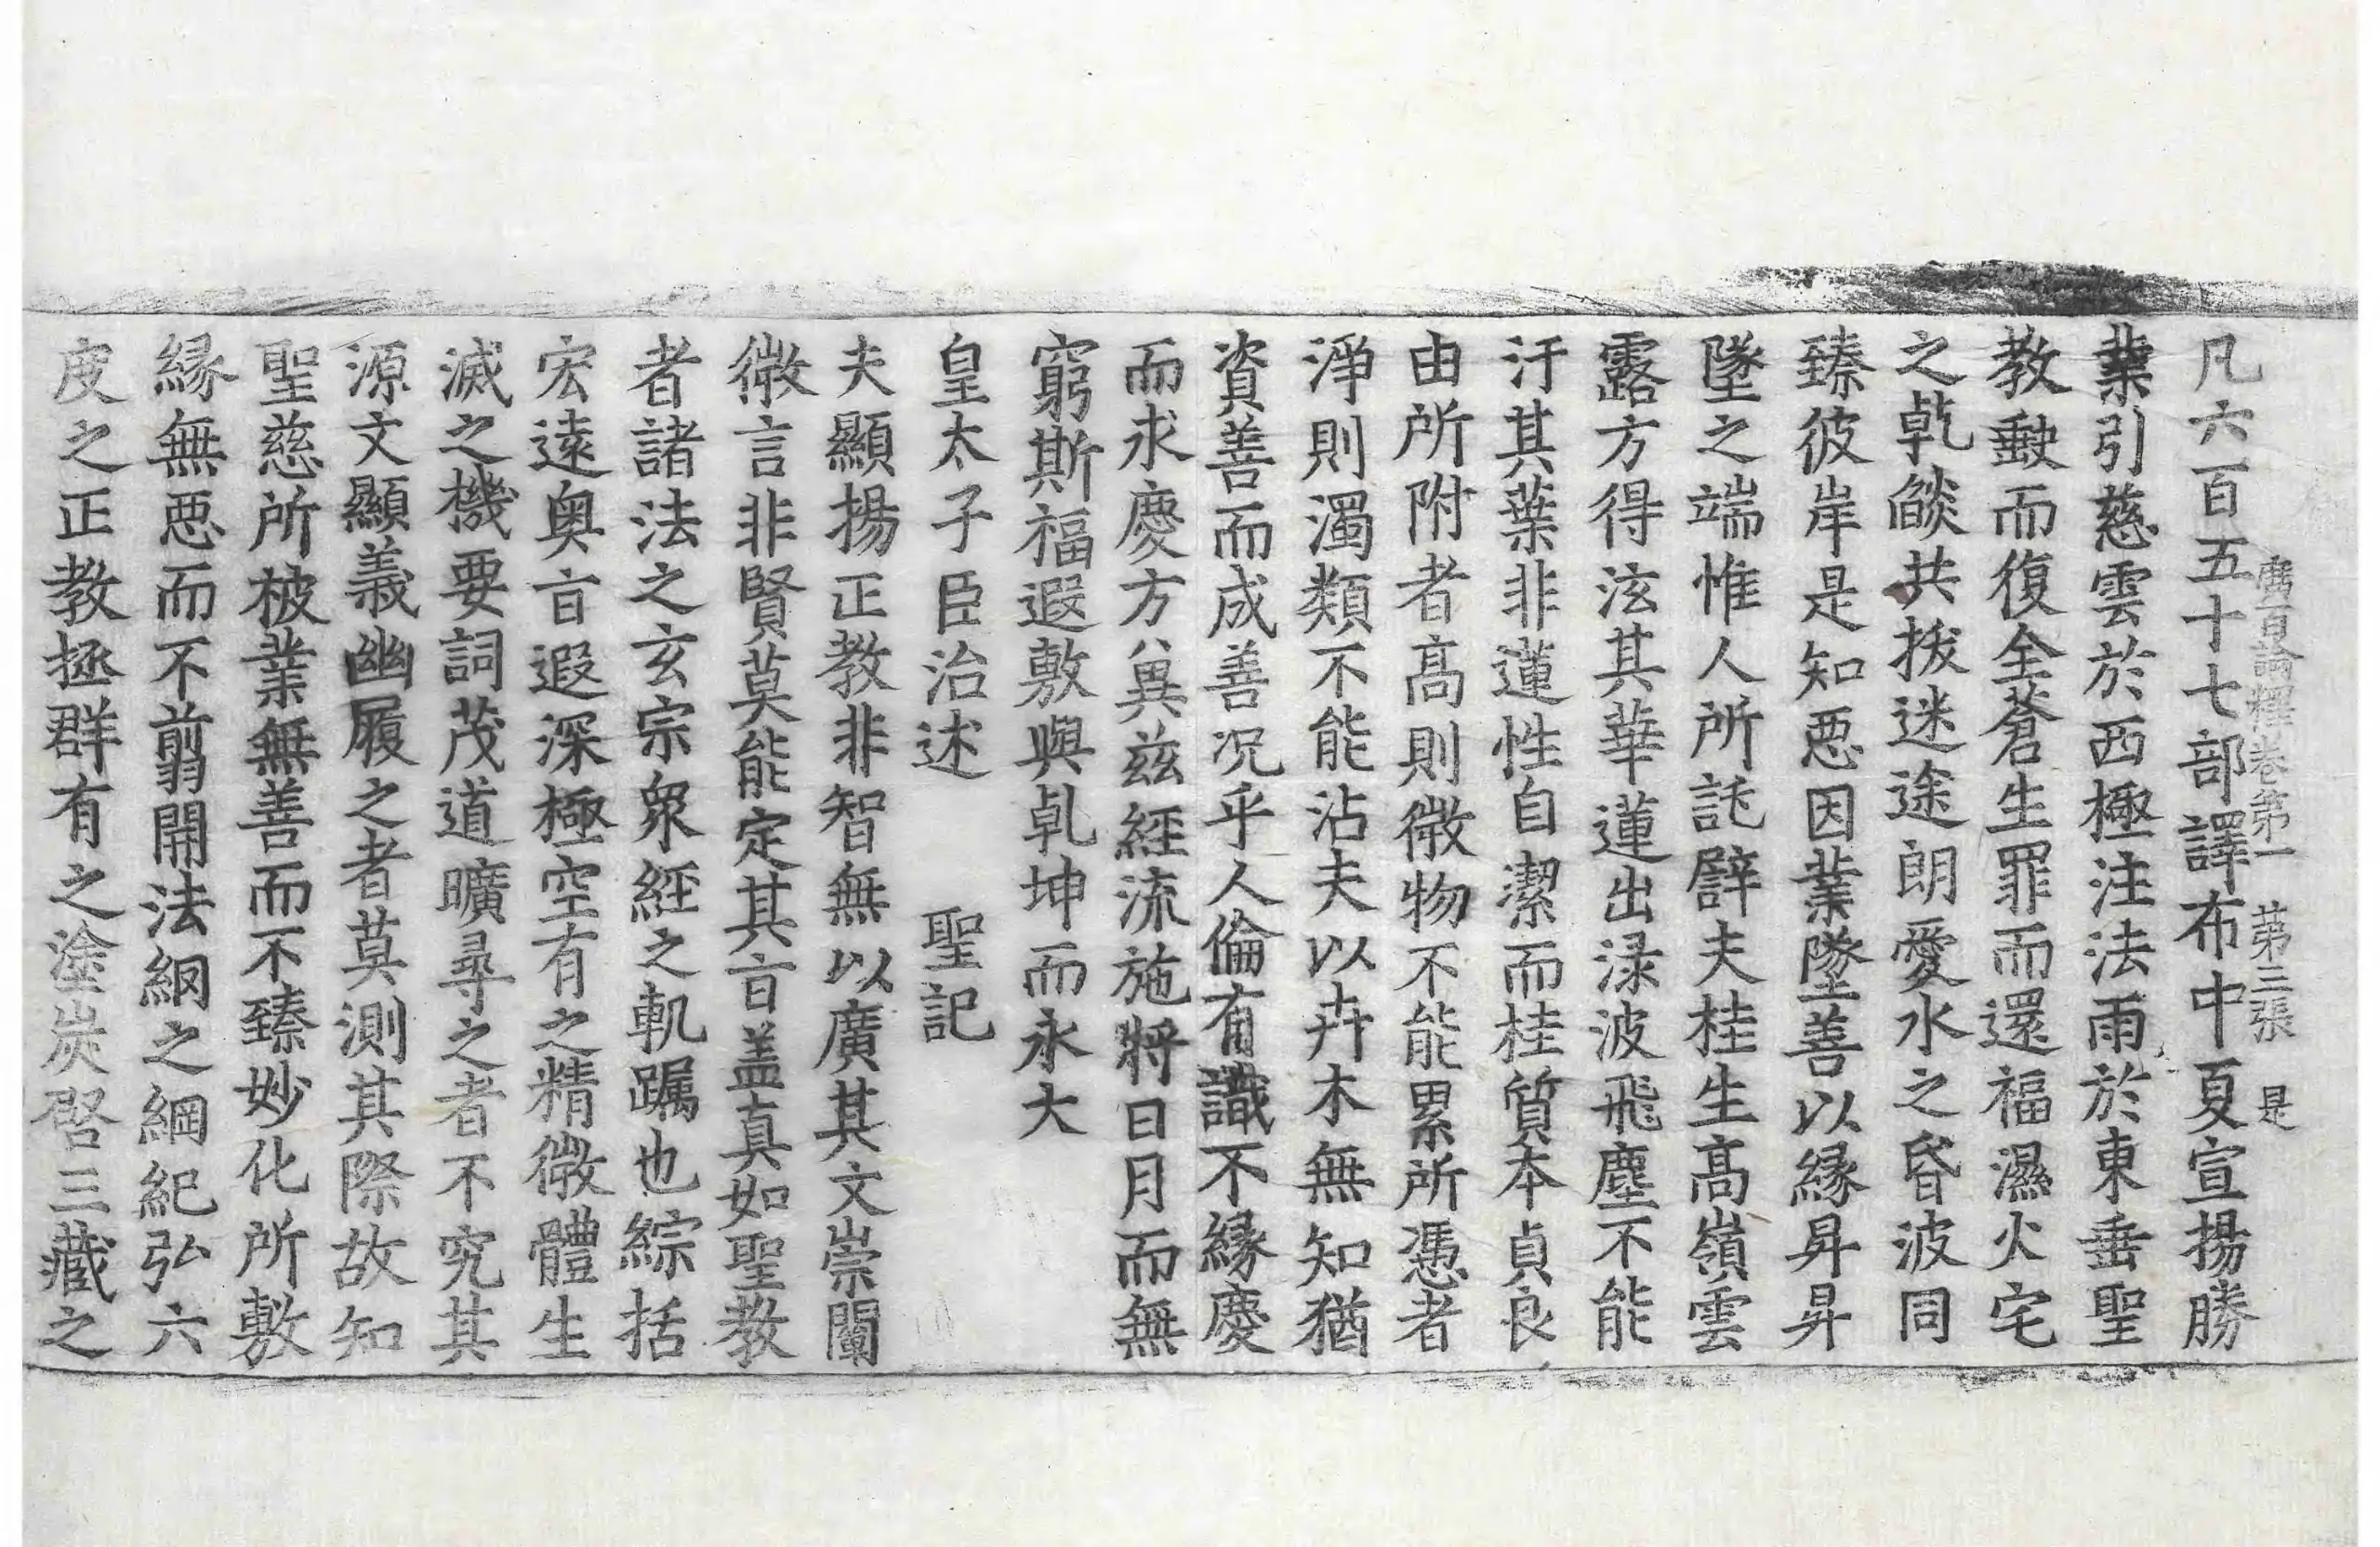 廣百論釋卷第一　第三張　是
凡六百五十七部譯布中夏宣揚勝
業引慈雲於西極注法雨於東垂聖
教𡙇而復全蒼生罪而還福濕火宅
之乾燄共拔迷途朗愛水之昏波同
臻彼岸是知惡因業墜善以緣昇昇
墜之端惟人所託譬夫桂生高嶺雲
露方得泫其華蓮出淥波飛塵不能
汙其葉非蓮性自潔而桂質本貞良
由所附者高則微物不能累所憑者
淨則濁類不能沾夫以卉木無知猶
資善而成善況乎人倫有識不緣慶
而求慶方冀茲經流施將日月而無
窮斯福遐敷與乾坤而永大
皇太子臣治述　聖記
夫顯揚正教非智無以廣其文崇闡
微言非賢莫能定其旨盖真如聖教
者諸法之玄宗衆經之軌躅也綜括
宏遠奧旨遐深極空有之精微體生
滅之機要詞茂道曠尋之者不究其
源文顯義幽履之者莫測其際故知
聖慈所被業無善而不臻妙化所敷
緣無惡而不翦開法網之綱紀弘六
度之正教拯群有之塗炭啓三藏之